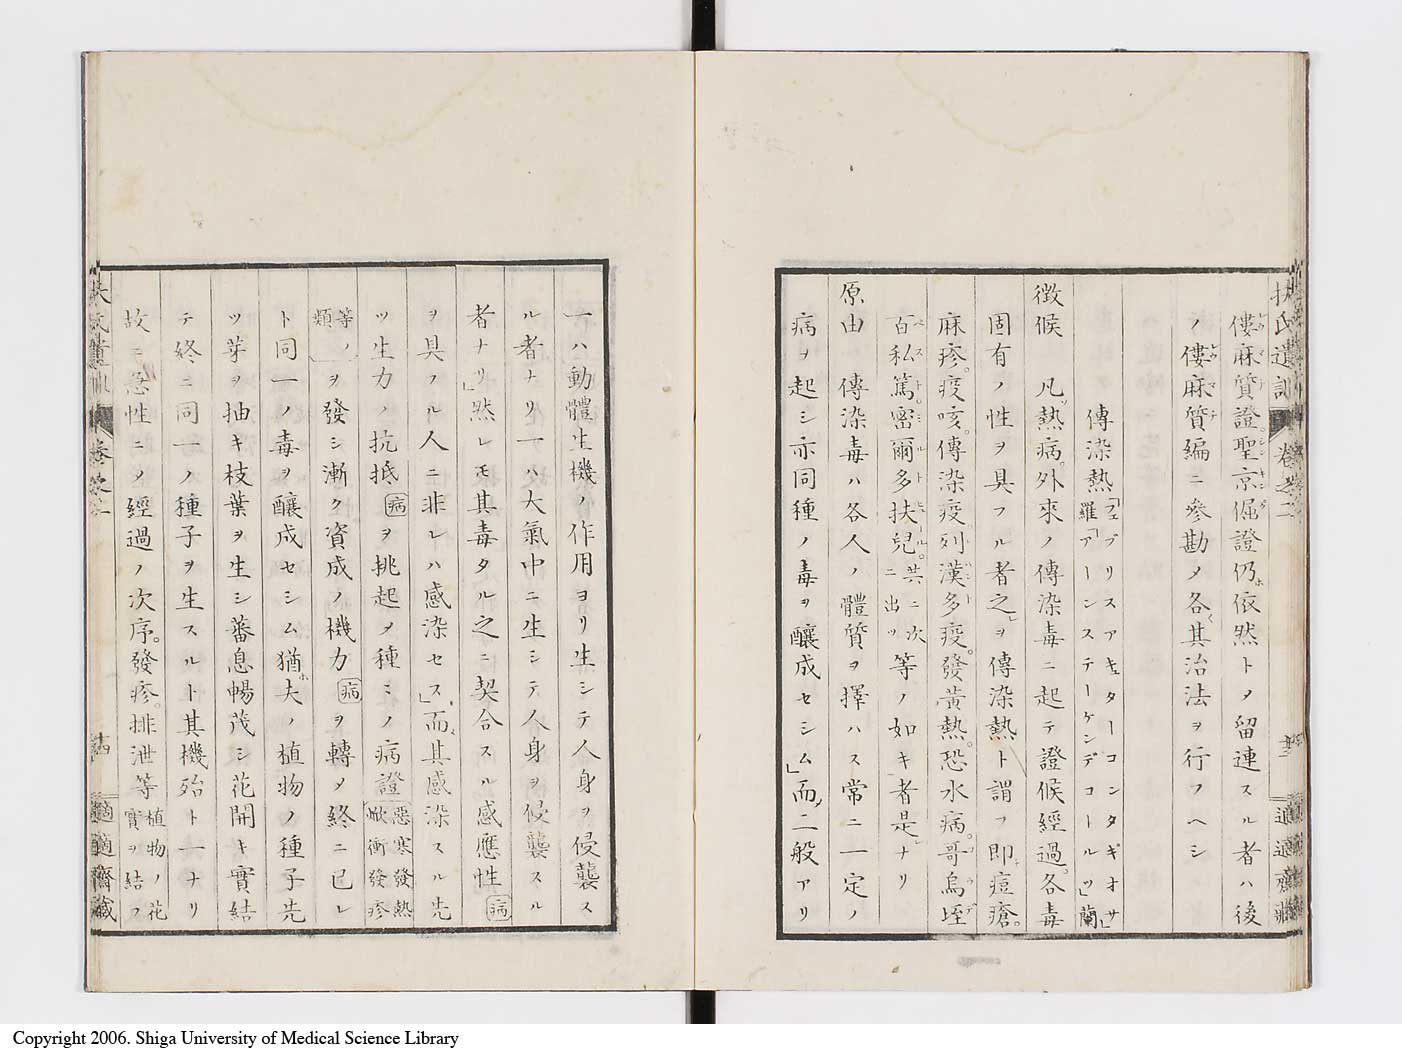 扶氏遺訓 卷之二 適適齋藏
僂麻質證聖京倔證仍依然トメ留連スル者ハ後
ノ僂麻質編ニ參勘メ各其治法ヲ行フヘシ
傳染熱「フェブリスアキュターコンタギオサ」羅「アーンステーケンデコールツ」蘭
徴候 凡熱病外來ノ傳染毒ニ起テ證候經過各毒
固有ノ性ヲ具フル者之ヲ傳染熱ト謂フ即痘瘡。
麻疹。疫咳。傳染疫列漢多疫。發黃熱。恐水病。哥烏埕
百私篤密爾多扶兒共ニ次ニ出ツ等ノ如キ者是ナリ
原由 傳染毒ハ各人ノ體質ヲ擇ハス常ニ一定ノ
病ヲ起シ亦同種ノ毒ヲ釀成セシム」而二般アリ
一ハ動體生機ノ作用ヨリ生シテ人身ヲ侵襲ス
ル者ナリ一ハ大氣中ニ生シテ人身ヲ侵襲スル
者ナリ」然レモ其毒タル之ニ契合スル感應性病
ヲ具フル人ニ非レハ感染セス」而其感染スル先
ツ生力ノ抗抵病ヲ挑起メ種ミノ病證惡寒發熱焮衝發疹
等ノ類ヲ發シ漸ク資成ノ機力病ヲ轉メ終ニ已レ
ト同一ノ毒ヲ釀成セシム猶夫ノ植物ノ種子先
ツ芽ヲ抽キ枝葉ヲ生シ蕃息暢茂シ花開キ實結
テ終ニ同一ノ種子ヲ生スルト其機殆ト一ナリ
故ニ急性ニメ經過ノ次序。發疹。排泄等植物ノ花實ヲ結フ
卷之二 十四 適適齋藏
Copyright 2006. Shiga University of Medical Science Library